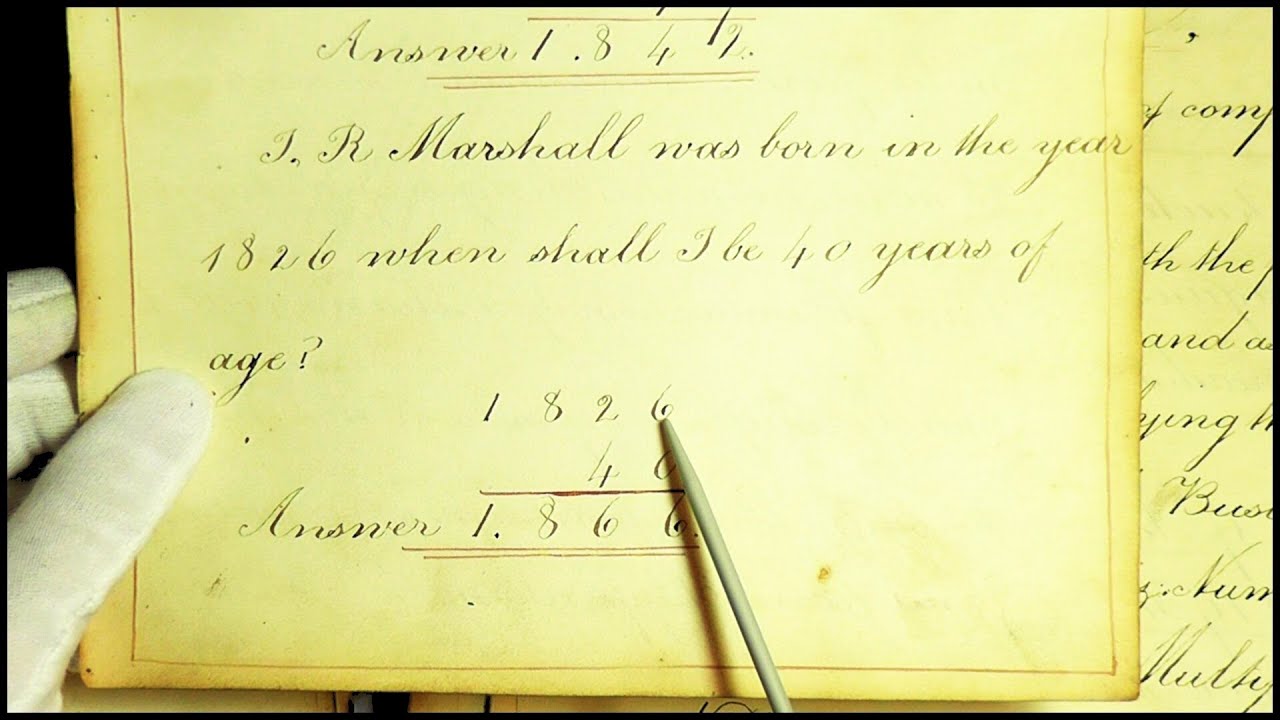 Answer 1.842.
I. R Marshall was born in the year
1826 when shall I be 40 years of
age?
1826
40
Answer 1.866.
of comp
th the p
and as
ying th
Busi
Num
Multy